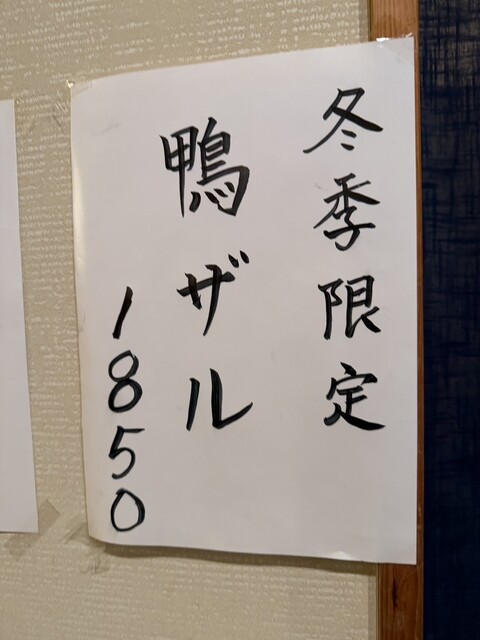 冬季限定
鴨ザル
1850